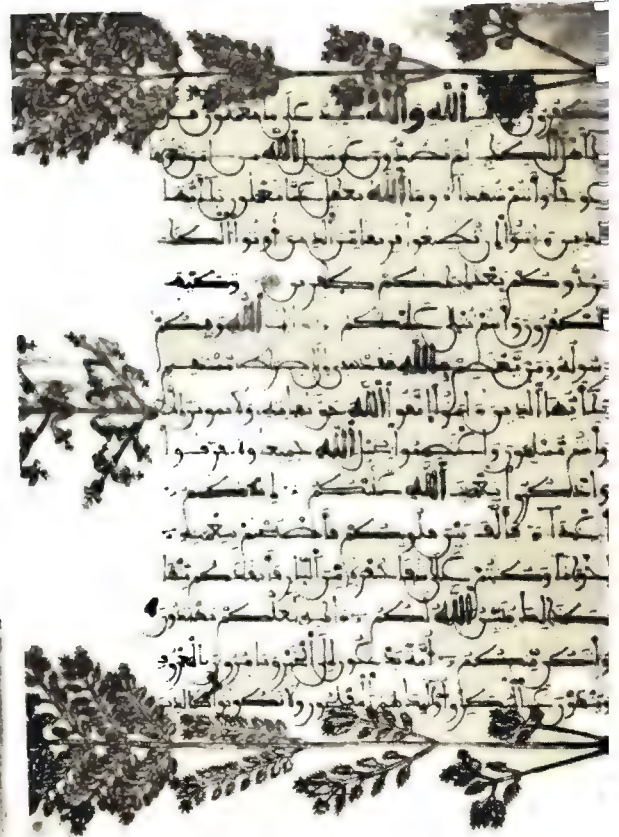 تكفرون بـايت الله والله شهيد على ما تعملون قل
يأهل الكتب لم تصدون عن سبيل الله من ءامن تبغونها
عوجا وأنتم شهداء وما الله بغفل عما تعملون يأيها
الذين ءامنوا إن تطيعوا فريقا من الذين أوتوا الكتب
يردوكم بعد إيمنكم كفرين وكيف
تكفرون وأنتم تتلى عليكم ءايت الله وفيكم
رسوله ومن يعتصم بالله فقد هدي إلى صرط مستقيم
يأيها الذين ءامنوا اتقوا الله حق تقاته ولا تموتن إلا
وأنتم مسلمون واعتصموا بحبل الله جميعا ولا تفرقوا
واذكروا نعمت الله عليكم إذ كنتم
أعداء فألف بين قلوبكم فأصبحتم بنعمته
إخونا وكنتم على شفا حفرة من النار فأنقذكم منها
كذلك يبين الله لكم ءايته لعلكم تهتدون
ولتكن منكم أمة يدعون إلى الخير ويأمرون بالمعروف
وينهون عن المنكر وأولئك هم المفلحون ولا تكونوا كالذين